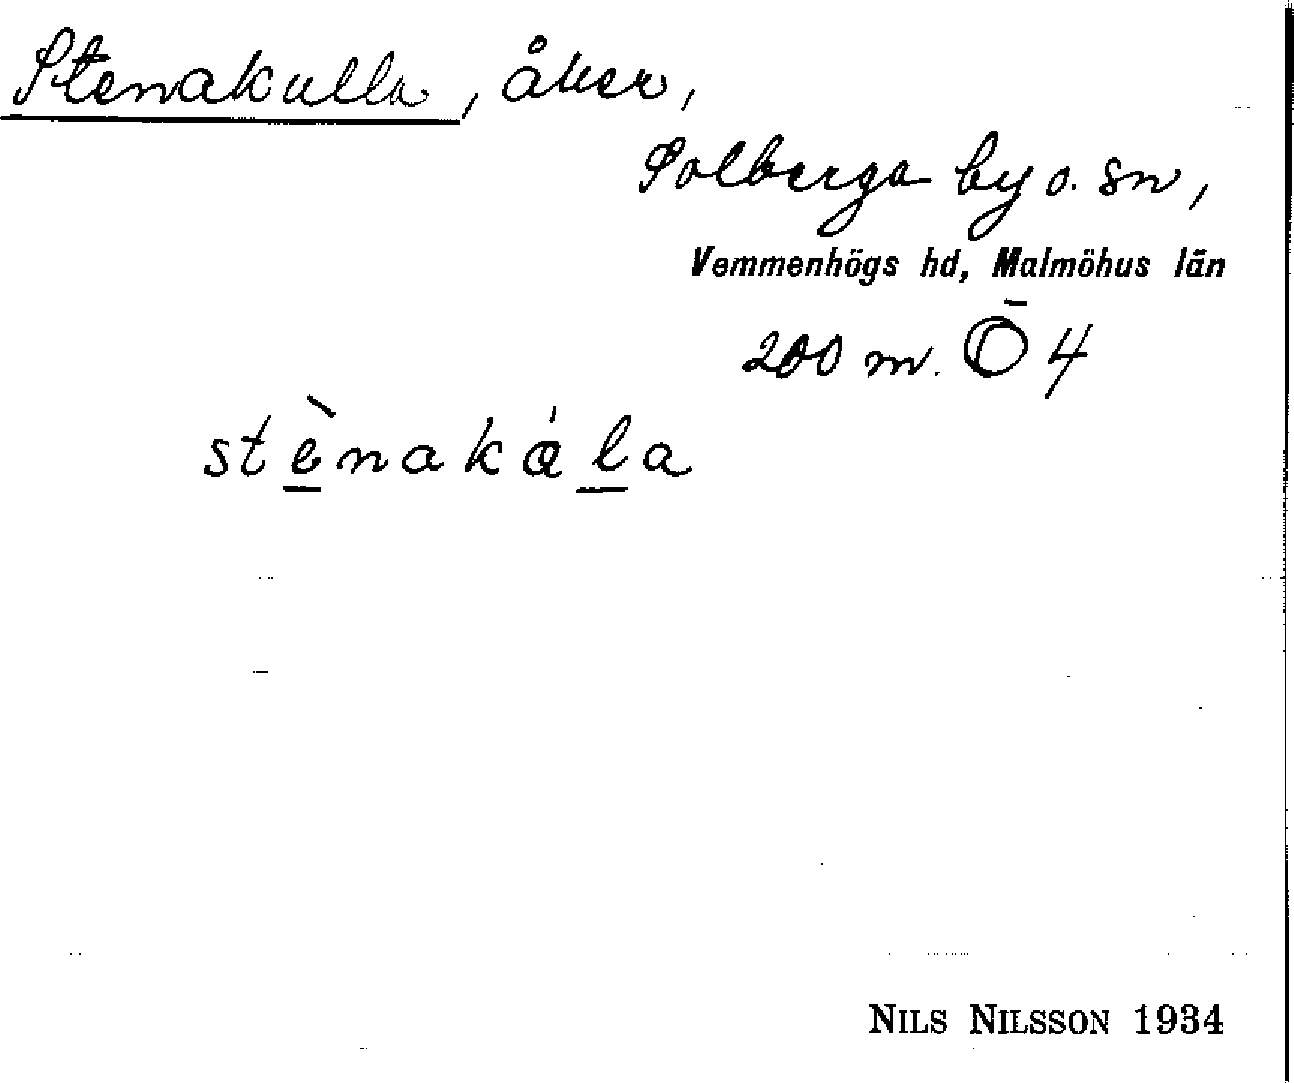 Stenakulla, åker,
Solberga by o. sn,
Vemmenhögs hd, Malmöhus län
200 m. Ō 4
stè̱nakáḻa
NILS NILSSON 1934